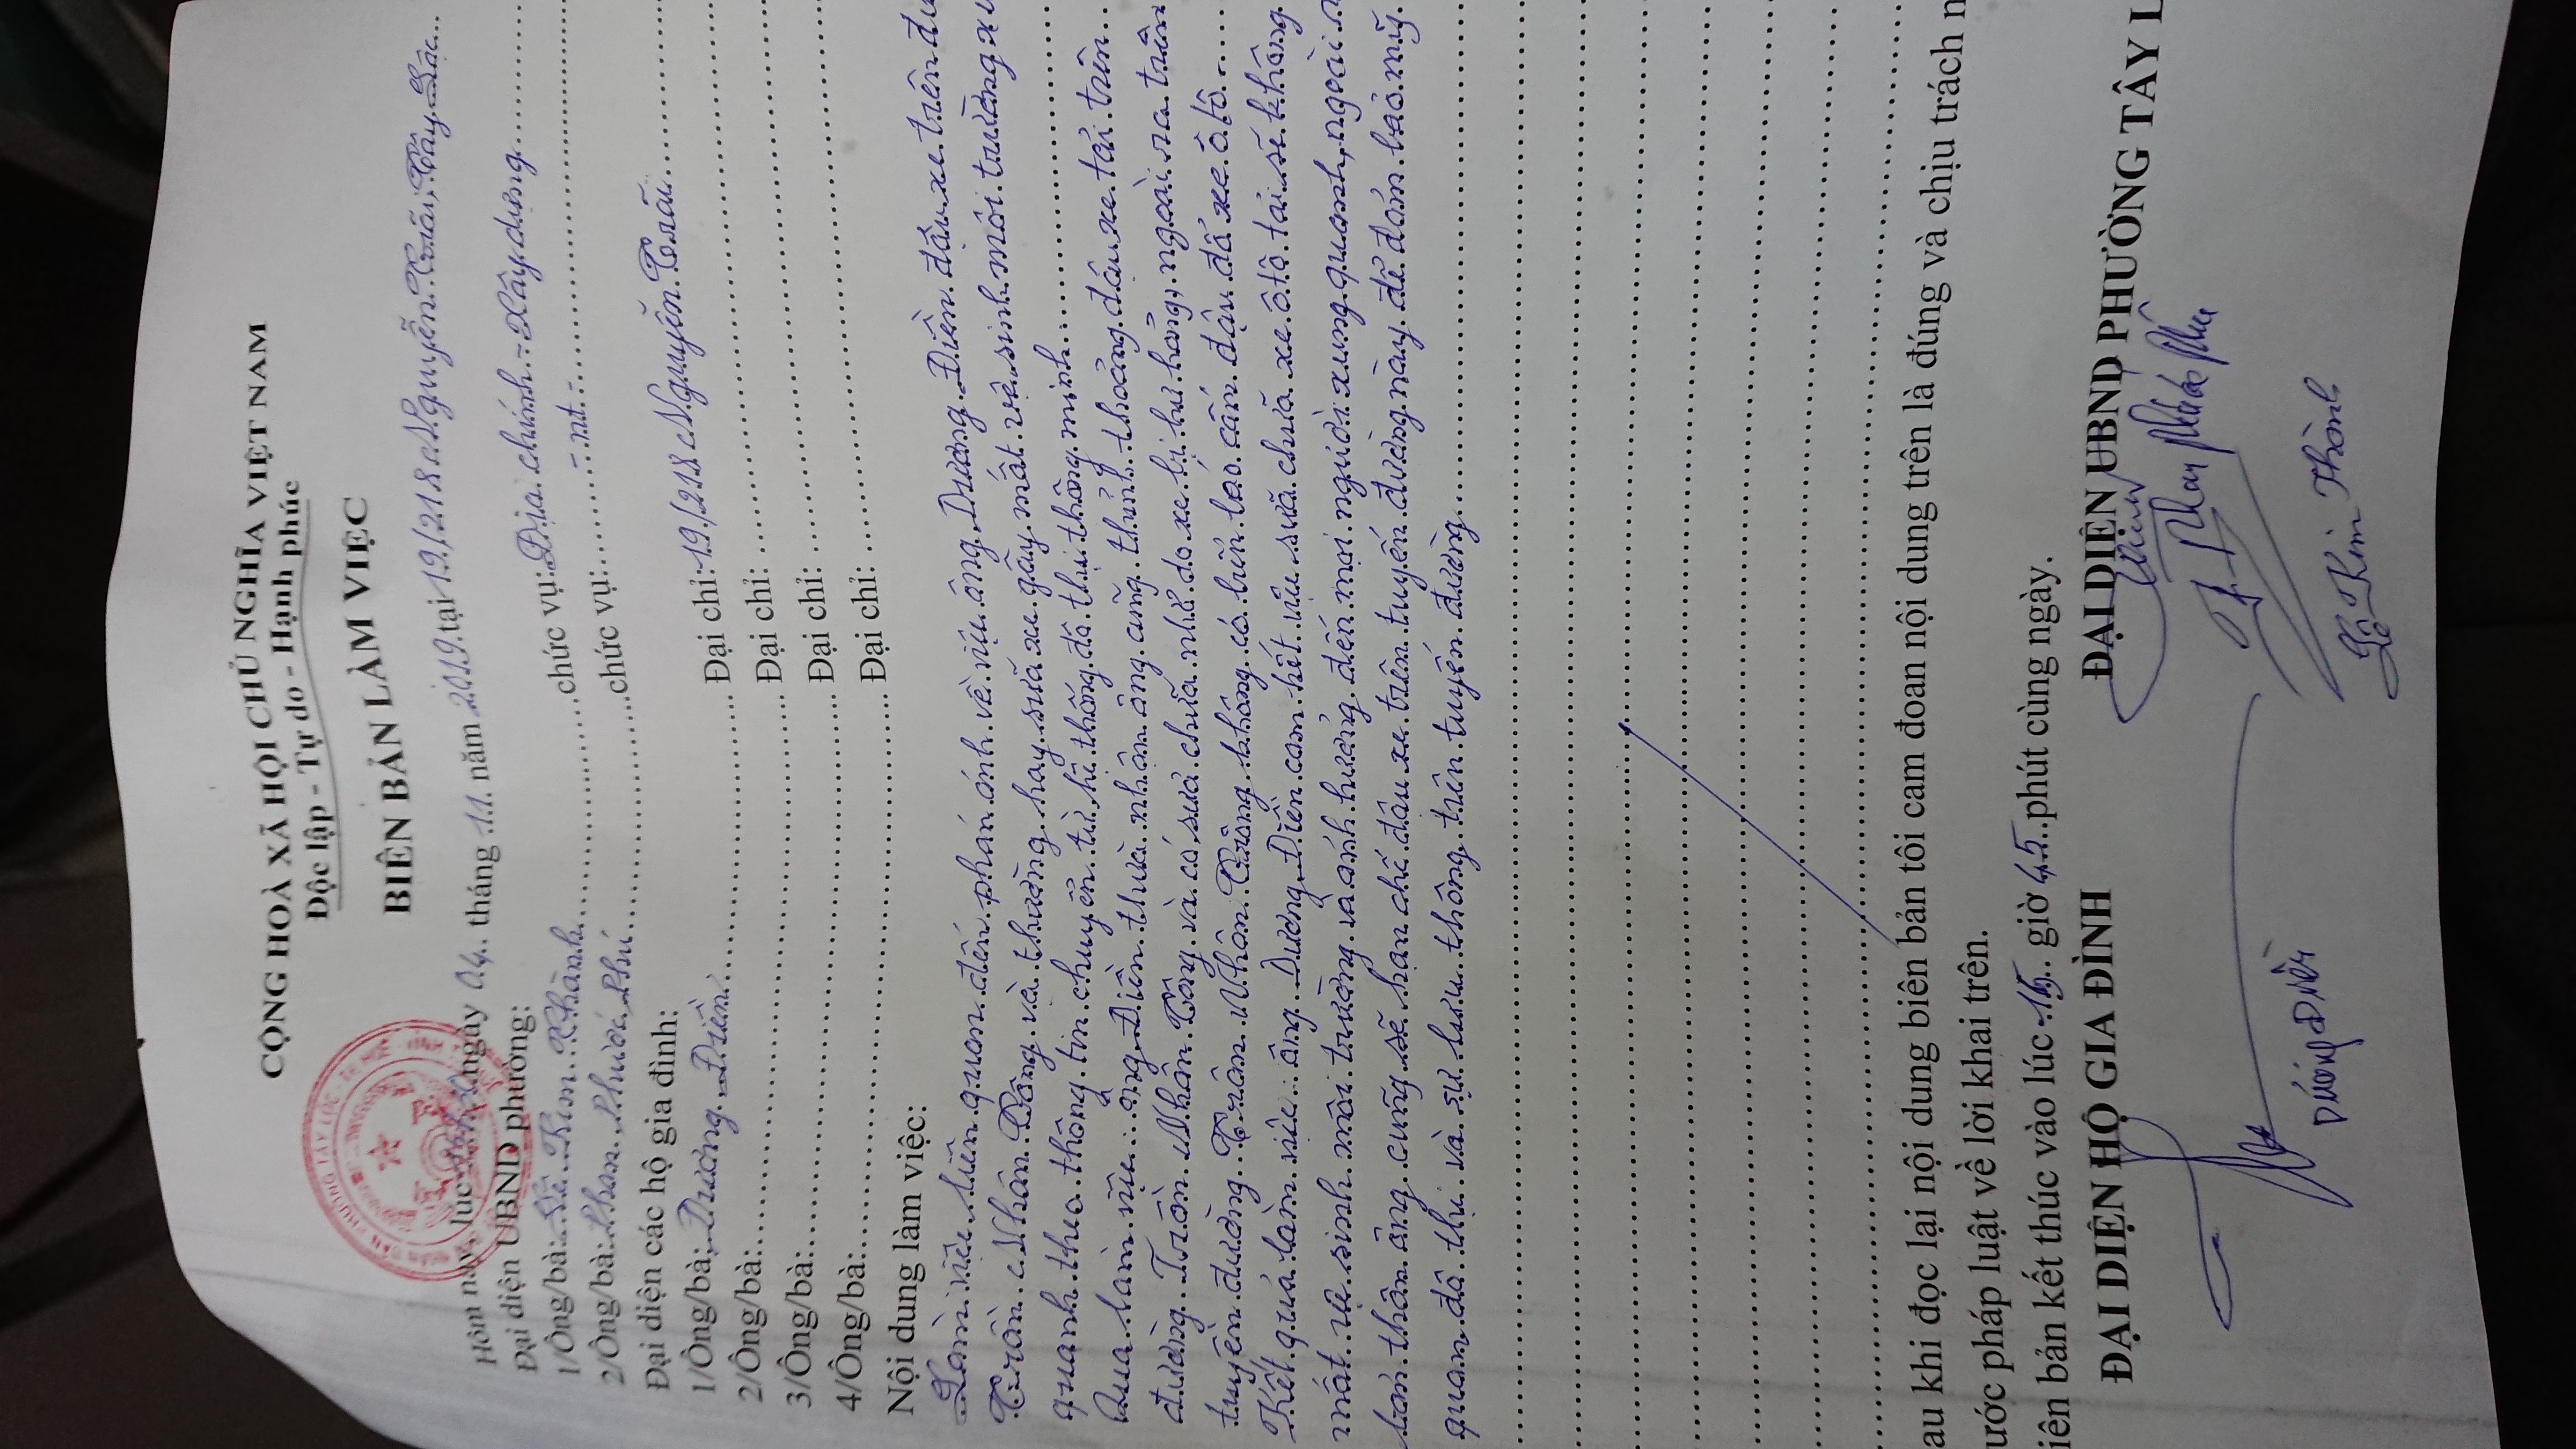 CỘNG HOÀ XÃ HỘI CHỦ NGHĨA VIỆT NAM
Độc lập - Tự do - Hạnh phúc
BIÊN BẢN LÀM VIỆC
Hôm nay, lúc ngày 04 tháng 11 năm 2019 tại 19/218 Nguyễn Trãi, Tây Lộc
Đại diện UBND phường:
1/Ông/bà: Lê Kim Thành chức vụ: Địa chính - Xây dựng
2/Ông/bà: Phan Phước Phú chức vụ: - nt -
Đại diện các hộ gia đình:
1/Ông/bà: Dương Điền Đại chỉ: 19/218 Nguyễn Trãi
2/Ông/bà: Đại chỉ:
3/Ông/bà: Đại chỉ:
4/Ông/bà: Đại chỉ:
Nội dung làm việc:
Làm việc liên quan đến phản ánh về việc ông Dương Điền đậu xe trên đư
Trần Nhân Tông và thường hay sửa xe gây mất vệ sinh môi trường xu
quanh theo thông tin chuyển từ hệ thống đô thị thông minh
Qua làm việc ông Điền thừa nhận ông cũng thỉnh thoảng đậu xe tải trên
đường Trần Nhân Tông và có sửa chữa nhỏ do xe bị hư hỏng, ngoài ra trên
tuyến đường Trần Nhân Tông không có biển báo cấm đậu đỗ xe ô tô
Kết quả làm việc: ông Dương Điền cam kết việc sửa chữa xe ô tô tải sẽ không
mất vệ sinh môi trường và ảnh hưởng đến mọi người xung quanh, ngoài r
bản thân ông cũng sẽ hạn chế đậu xe trên tuyến đường này để đảm bảo mỹ
quan đô thị và sự lưu thông trên tuyến đường
au khi đọc lại nội dung biên bản tôi cam đoan nội dung trên là đúng và chịu trách n
ước pháp luật về lời khai trên.
iên bản kết thúc vào lúc 15 giờ 45 phút cùng ngày.
ĐẠI DIỆN HỘ GIA ĐÌNH ĐẠI DIỆN UBND PHƯỜNG TÂY L
Phan Phước Phú
Dương Điền Lê Kim Thành